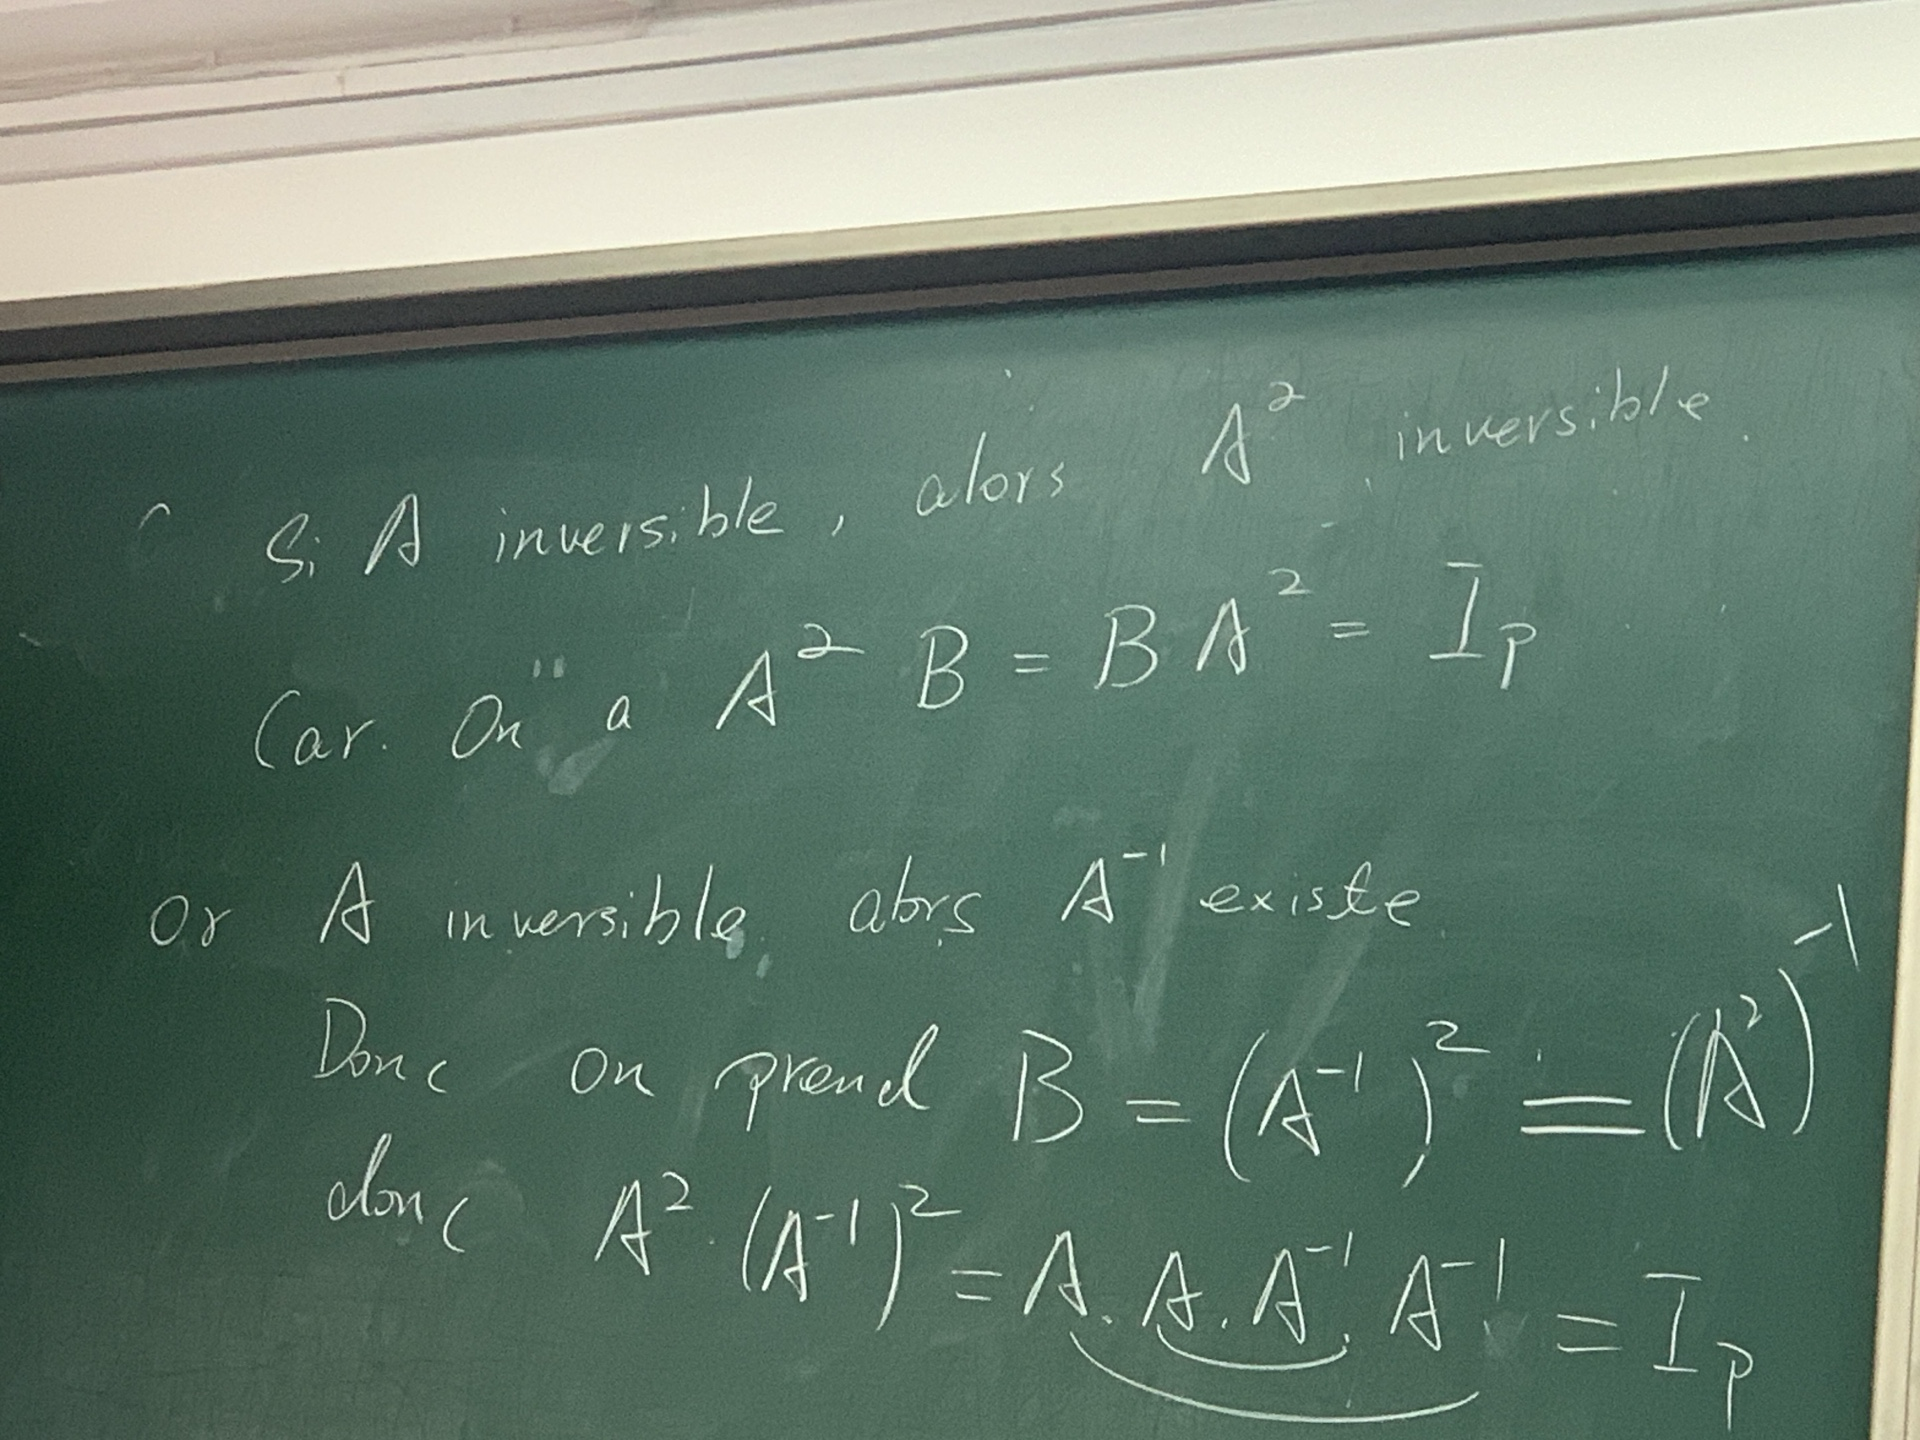 Si A inversible, alors A² inversible.
Car. On " a A² B = B A² = Ip
or A inversible, alors A⁻¹ existe.
Donc on prend B = (A⁻¹)² = (A²)⁻¹
donc A² · (A⁻¹)² = A . A . A⁻¹ . A⁻¹ = Ip